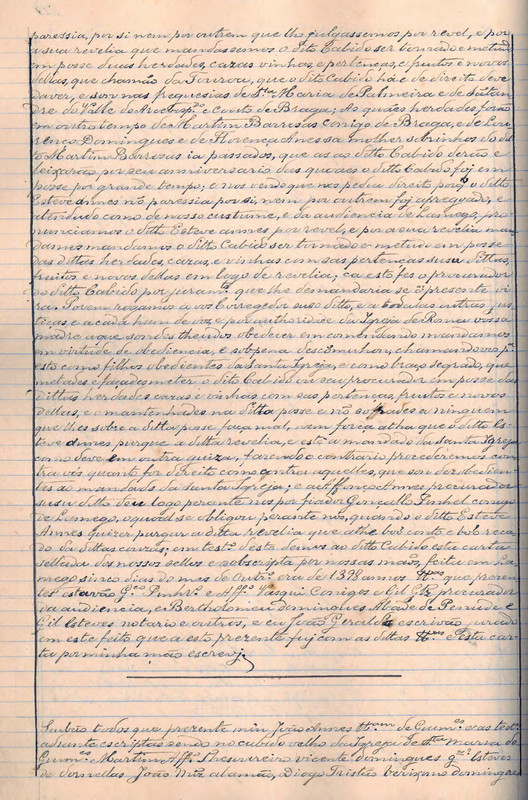 paressia, por si nem por outrem que lho julgassemos por revel, e por
a sua revelia que mandassemos o ditto Cabido ser tornado e metudo
em posse duas herdades, cazas vinhas, e pertenças, e fruitos e novos
dellas, que chamão da Tourou, que o ditto Cabido há e de direito deve
daver, e son nas freguesias de Sta Maria de Palmeira e de
dre do Valle do Arcebispº e Couto de Braga; As quães herdades forão
em outro tempo de Martim Barrosas Conigo de Braga, e de Lou-
renço Domingues e de Florença Annes sa molher sobrinhos do dit-
to Martim Barrosas ia passados, que as ao ditto Cabido derão e
leixarão por seu anniversario das quaes o ditto Cabido foj em
posse por grande tempo; e nos vendo que nos pedia direito porq o ditto
Esteve Annes não paressia por si, nem por outrem foj apregoado, e
atendudo como he de nosso custume, e da audiencia de Lamego, pro
nunciamos o ditto Esteve Annes por revel, e por a sua revelia man
damos mandamos o ditto Cabido ser tornado e metudo em posse
das dittas herdades, cazas, e vinhas com sas pertenças suso dittas,
fruitos e novos dellas em logo de revelia; ca esto fes o procurador
do ditto Cabido por jurante que lhe demandaria se presente vi
ra; Porem rogamos a vos Corregedor suso ditto, e a todalas outras jus
tiças, e a cada hum de vos, e por authoridade da Igreja de Roma vossa
madre a que sondes theudos obedecer em comendando mandamos
em virtude de obediencia, e sob pena descomunhon, chamando vos pª
esto como filhos obedientes da Santa Igreja, e como braço segrado, que
metades e façades meter o ditto Cabido ou seu procurador em posse das
dittas herdades cazas e vinhas com sas pertenças, fruitos e novos
dellas, e o mantenhades na ditta posse e nõ soffrades a ninguem
que lhes sobre a ditta posse faça mal, nem força atha que o ditto Es-
teve Annes purgue a ditta revelia, e este a mandado da Santa Igreja
como deve em outra guiza, fazendo o contrario procederemos con
tra vós quanto for direito como contra aquelles, que son desobedien-
tes ao mandado da Santa Igreja; e Affonço Annes procurador
suso ditto deu logo perante nós por fiador Gonçallo Pinhel conigo
de Lamego, o qual se obligou perante nós, quando o ditto Esteve
Annes quizer purgar a ditta revelia que a the boi conto e bõo reca
do da dittas couzas; em testº desto demos ao ditto Cabido esta carta
sellada dos nossos sellos e sobscripta por nossas mãos, feita em La-
mego sinco dias do mes de Outrº era de 1398 annos que prezen-
tes estavão Gço Pinhel e Affº Vasqui Conigos e Gil Glz procurador
da audiencia, e Bertholomeu Domingues Abade de Penude e
Gil Esteves notario e outros, e eu João Geraldes escrivão jurado
em este feito que a esto prezente fuj com as dittas esta car-
ta por minha mão escrevj
Saibão todos que prezente min João Annes de Guimes e as testas
adiante escriptas sendo no cabido velho da Igreja de Sta Maria do
Guimes Martim Affº Thesoureiro vicente domingues gço Esteves
de dornellas João Miz alamão, Diogo Tristão verissimo domingues